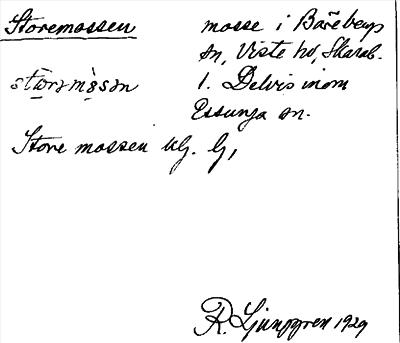 Storemossen
mosse i Bärebergs
sn, Viste hd, Skarab.
l. Delvis inom
Essunga sn.
Store mossen kg. G,
R. Ljunggren 1929